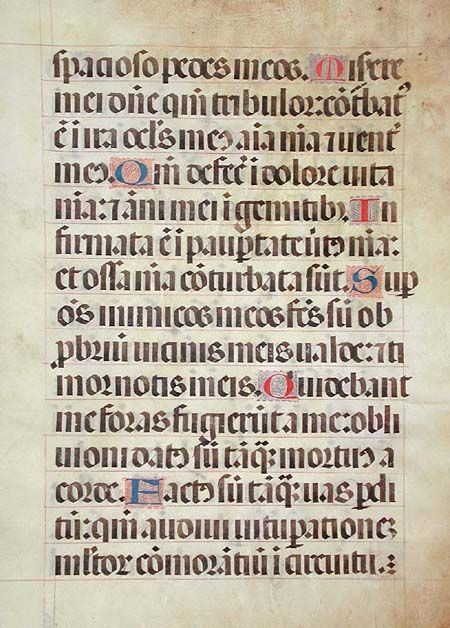 spacioso pedes meos. Misere
mei dn̄e qm̄ tribulor: cōt̄bat᷒
ē ī ira ocls̄ me᷒ aīa m̄a ⁊ uent᷒
me᷒. Qm̄ defec̄ ī dolore uita
m̄a: ⁊ āni mei ī gemitib᷒. In
firmata ē ī paup̄tate ūt᷒ m̄a:
et ossa m̄a cōturbata sūt. Sup
oē̄s inimicos meos fc̄s sū ob
p̄briū uicinis meis ualde: ⁊ ti
mor notis meis. Qui debant
me foras fugierūt a me: obli
uioni dat᷒ sū tāq̄ꝫ mortu᷒ a
corde. Fact᷒ sū tāq̄ꝫ uas p̄di
tū: qm̄ audiui uitup̄ationeꝫ
ml̄tor cōmorātiū ī circuitu.: